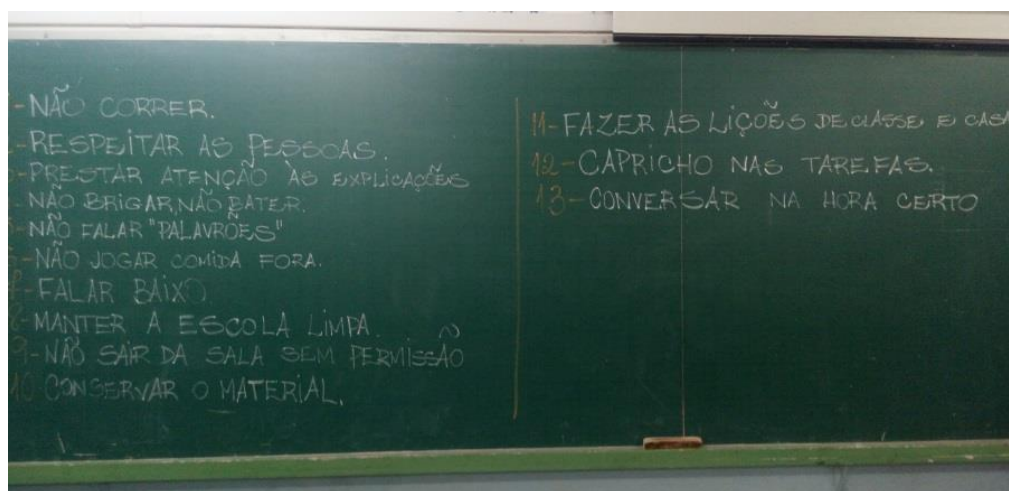 - NÃO CORRER.
- RESPEITAR AS PESSOAS.
- PRESTAR ATENÇÃO ÀS EXPLICAÇÕES
- NÃO BRIGAR, NÃO BATER.
- NÃO FALAR "PALAVRÕES"
- NÃO JOGAR COMIDA FORA.
- FALAR BAIXO
8-MANTER A ESCOLA LIMPA.
9-NÃO SAIR DA SALA SEM PERMISSÃO
10 CONSERVAR O MATERIAL.
11-FAZER AS LIÇÕES DE CLASSE E CASA
12-CAPRICHO NAS TAREFAS.
13-CONVERSAR NA HORA CERTO